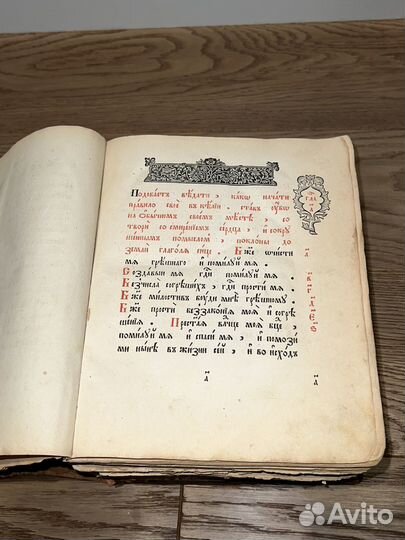 Подобаетъ вѣдати , какѡ начати
правило своѐ въ кѣлїи . ставъ ᲂу҆бѡ
на ѻ҆бычномъ своемъ мѣстѣ , со
твори со смиренїемъ сердца , и҆ сокру
шеннымъ помысломъ , поклоны до
земли глаголѧ сице . Бж҃е ѡ҆чисти
мѧ грѣшнаго и҆ помилуй мѧ .
Созда́вый мѧ гд҇и помилуй мѧ .
Безчисла согрѣшихъ , гд҇и прости мѧ .
Бж҃е милостивъ буди мнѣ грѣшному
Бж҃е прости беззаконїѧ моѧ̀ и҆ согрѣ
шенїѧ . Прест҃аѧ влⷣчце моѧ̀ бц҃е ,
помилуй мѧ и҆ спаси мѧ , и҆ помози
ми нынѣ въ жизни сей , и҆ во и҆схо́дъ
гла
а҃
в҃
г҃
д҃
є҃
ѕ҃
а҃
а҃
Avito